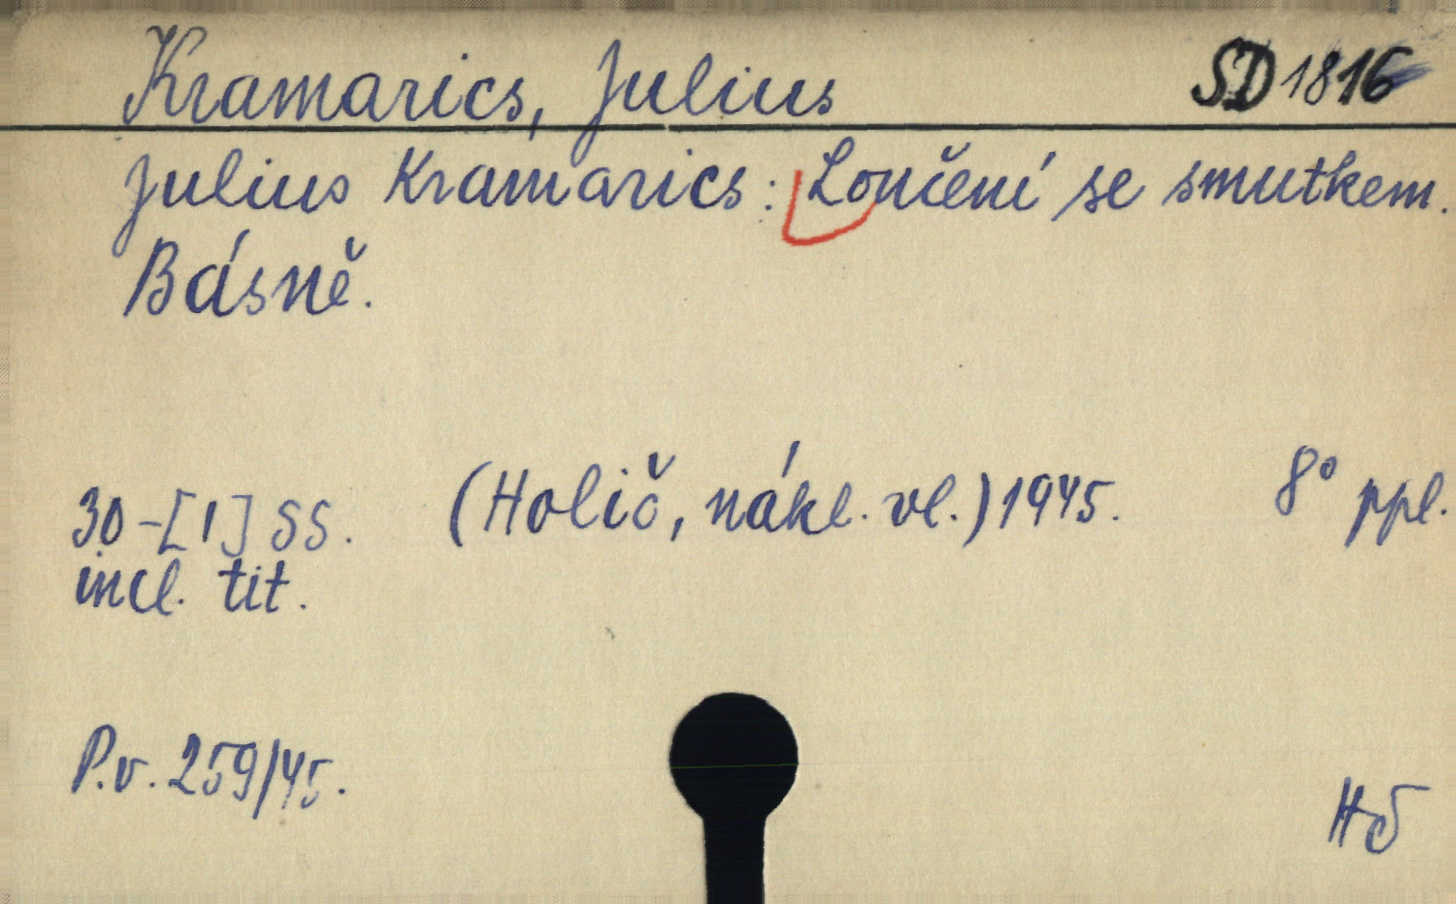 Kramarics, Julius SD 1816
Julius Kramarics: Loučení se smutkem.
Básně.
30-[1] SS. (Holič, nákl. vl.) 1945. 8° ppl.
incl. tit.
P.v. 259/45.